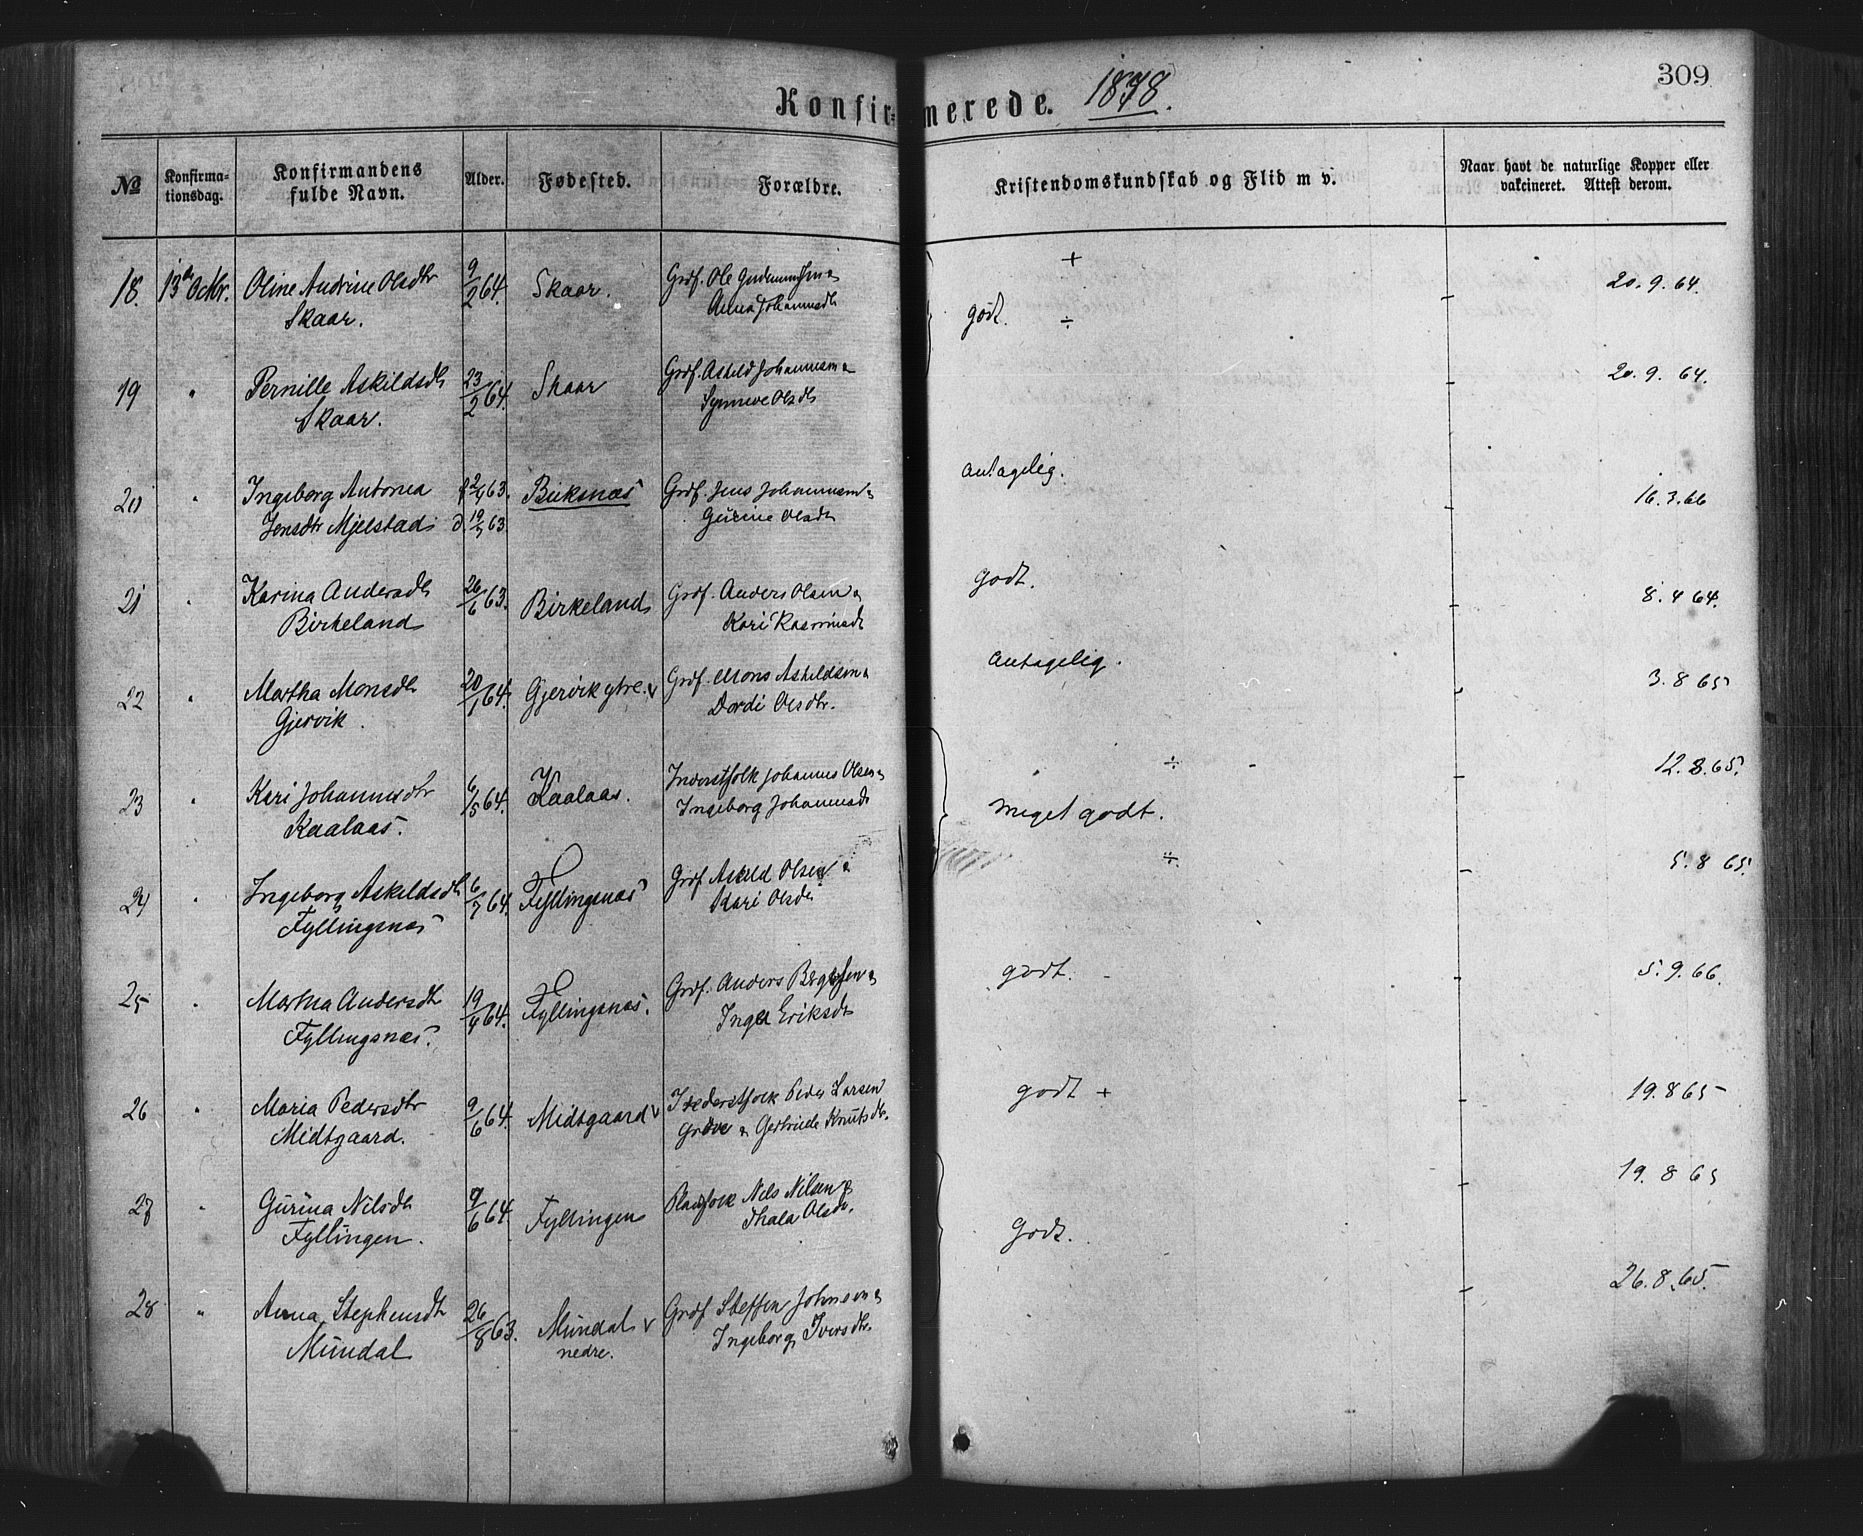 309
Konfirmerede. 1878.
No
Konfirmationsdag.
Konfirmandens fulde Navn.
Alder.
Fødested.
Forældre.
Kristendomskundskab og Flid m v.
Naar havt de naturlige Kopper eller vakcineret. Attest derom.
18. 13de Octbr. Oline Andrine Olsdtr 9/2 64. Skaar. Grdf. Ole Gudmundsen & + 20. 9. 64.
Skaar. Anna Johannesdt godt. ÷
19 " Pernille Askildsdt 23/2 64. Skaar Grdf. Askild Johannesen & 20. 9. 64.
Skaar. Synneve Olsdt
20 " Ingeborg Antonia f 2/4 63. Birksnæs Grdf. Jens Johannesen & antagelig. 16. 3. 66
Jensdtr Mjelstad d. 19/ 63. Gurine Olsdt
21 " Karina Andersdt 26/6 63. Birkeland Grdf. Anders Olsen & godt. 8. 4 64.
Birkeland Kari Rasmusdt
22 " Martha Monsdt 20/1 64. Gjervik ytre. v Grdf. Mons Askildsen & antagelig. 3. 8 65
Gjervik. Dordi Olsdtr.
23 " Kari Johannesdtr 6/5 64. Kaalaas. Inderstfolk Johannes Olsen & ÷ 12. 8. 65.
Kaalaas. Ingeborg Johannesdt meget godt.
24 " Ingeborg Askildsdt 6/7 64. Fyllingsnæs Grdf Askild Olsen & ÷ 5. 8 65.
Fyllingsnæs Kari Olsdt
25 " Martha Andersdt 19/4 64. Fyllingsnæs. Grdf. Anders Brynjulfsen & godt. 5. 9. 66.
Fyllingsnæs. Inga Eriksdt
26 " Maria Pedersdtr 9/6 64. Midtgaard v Inderstfolk Peder Larsen godt + 19. 8 65
Midtgaard. & Gertrude Knutsdtr.
27 " Gurina Nilsdt 9/6 64. Fyllingen Pladsfolk Nils Nilsen & 19. 8 65
Fyllingen. Thala Olsdtr. Godt.
28 " Anna Stephensdt 26/8 63. Mundal v Grdf Steffen Johnsen & 26. 8. 65.
Mundal nedre. Ingeborg Iversdtr.